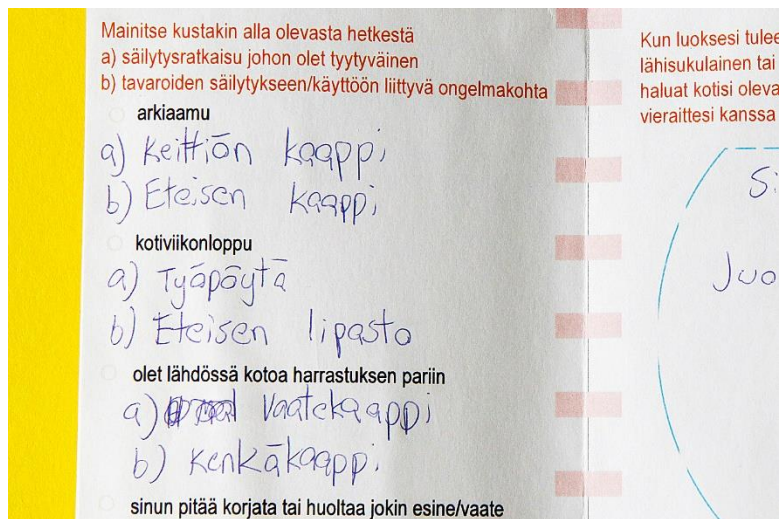 Mainitse kustakin alla olevasta hetkestä
a) säilytysratkaisu johon olet tyytyväinen
b) tavaroiden säilytykseen/käyttöön liittyvä ongelmakohta
arkiaamu
a) Keittiön kaappi
b) Eteisen kaappi
kotiviikonloppu
a) Työpöytä
b) Eteisen lipasto
olet lähdössä kotoa harrastuksen pariin
a) Vaatekaappi
b) Kenkäkaappi
sinun pitää korjata tai huoltaa jokin esine/vaate
Kun luoksesi tulee
lähisukulainen tai
haluat kotisi oleva
vieraittesi kanssa
Si
Juo